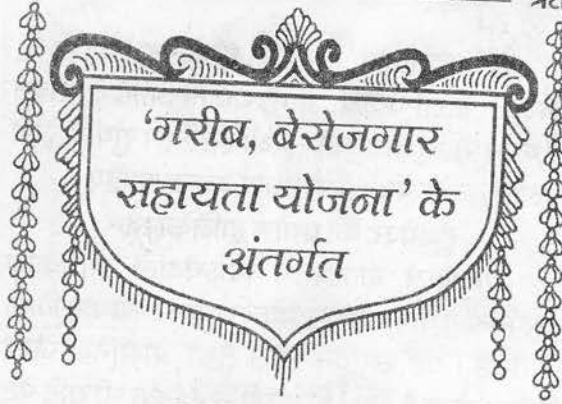 ‘गरीब, बेरोजगार
सहायता योजना’ के
अंतर्गत